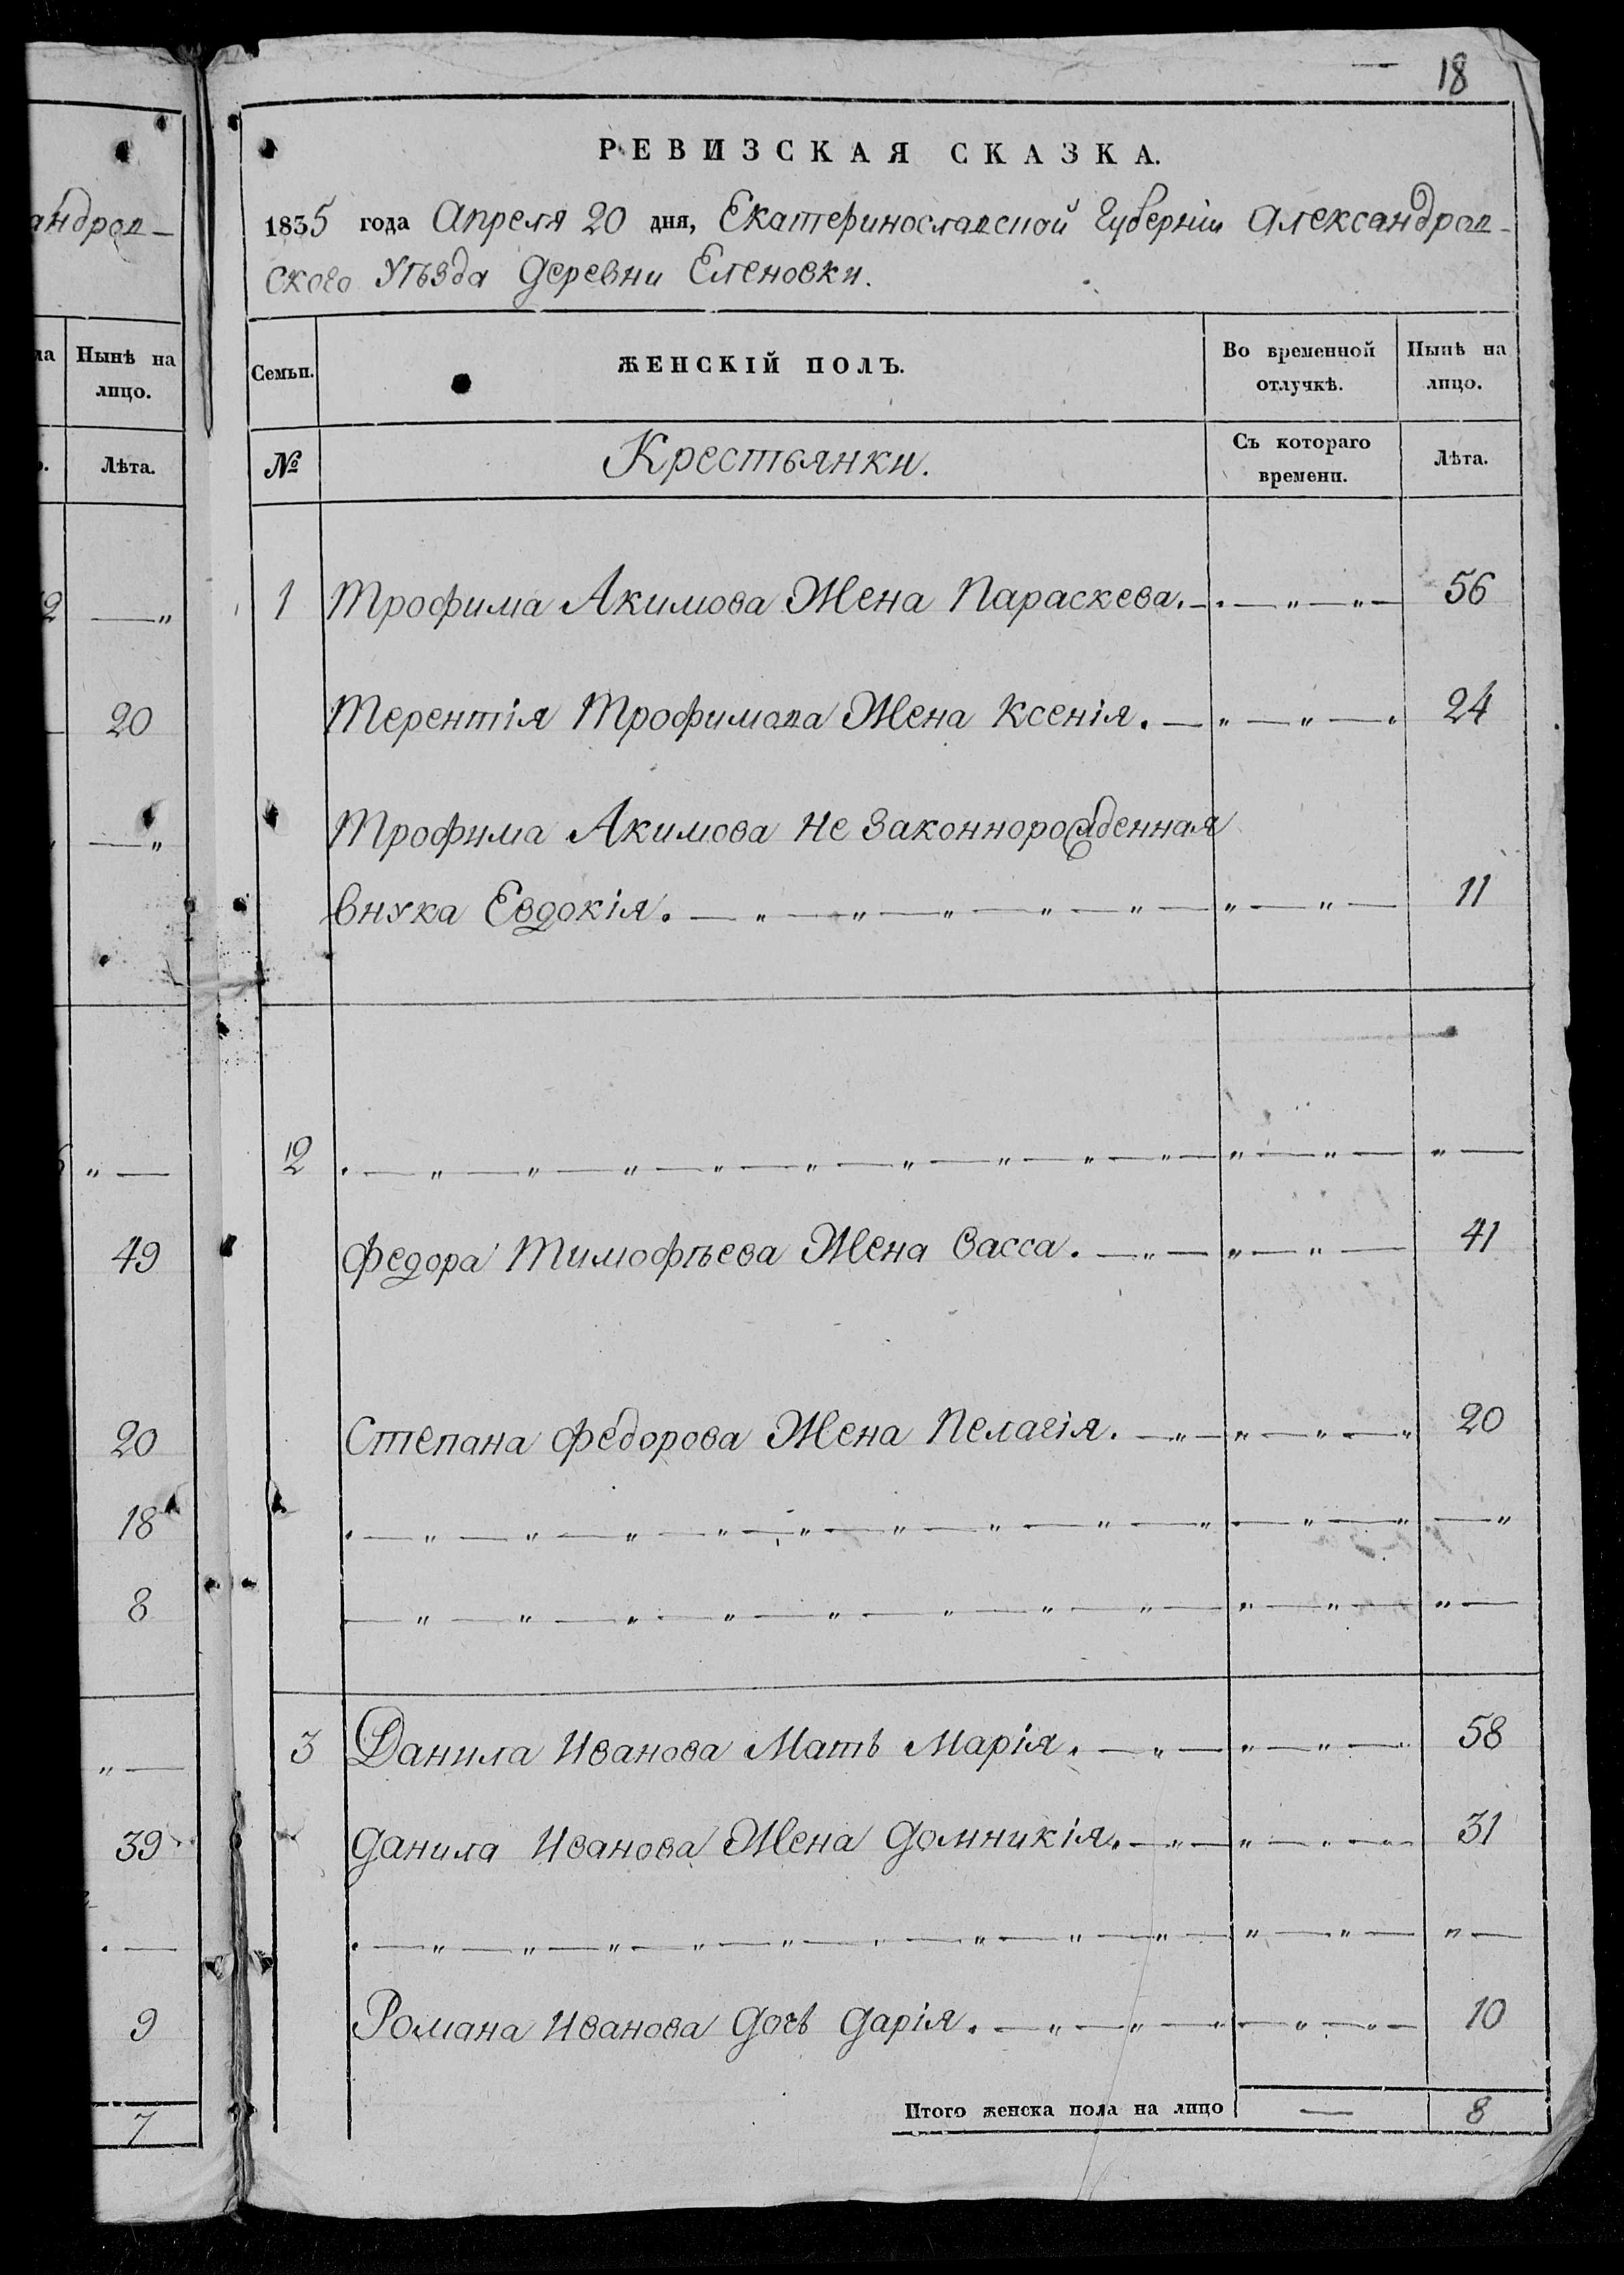 андров-
ла
Нынѣ на
лицо.
Лѣта.
20
49
20
18
8
39
9
7
18
РЕВИЗСКАЯ СКАЗКА.
1835 года Апреля 20 дня, Екатеринославской Губерніи Александров-
ского Уѣзда деревни Еленовки.
Семьи.
ЖЕНСКІЙ ПОЛЪ.
Во временной
отлучкѣ.
Нынѣ на
лицо.
№
Крестьянки.
Съ котораго
времени.
Лѣта.
1 Трофима Акимова Жена Параскева. 56
Терентія Трофимова Жена Ксенія. 24
Трофима Акимова не законнорожденная
внука Евдокія. 11
2
Федора Тимофѣева Жена Васса. 41
Степана Федорова Жена Пелагія. 20
3 Данила Иванова Мать Марія. 58
Данила Иванова Жена Домникія. 31
Романа Иванова Дочь Дарія. 10
Итого женска пола на лицо — 8